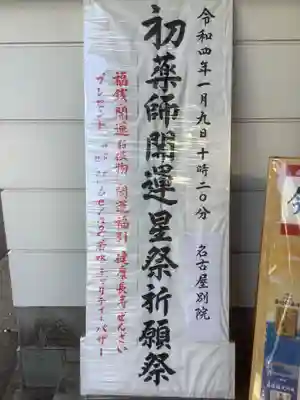 令和四年一月九日十時二〇分
初薬師開運星祭祈願祭
名古屋別院
福銭開運お牘物 開運福引 健康長寿ぜんざい
プレゼント
チャリティーバザー